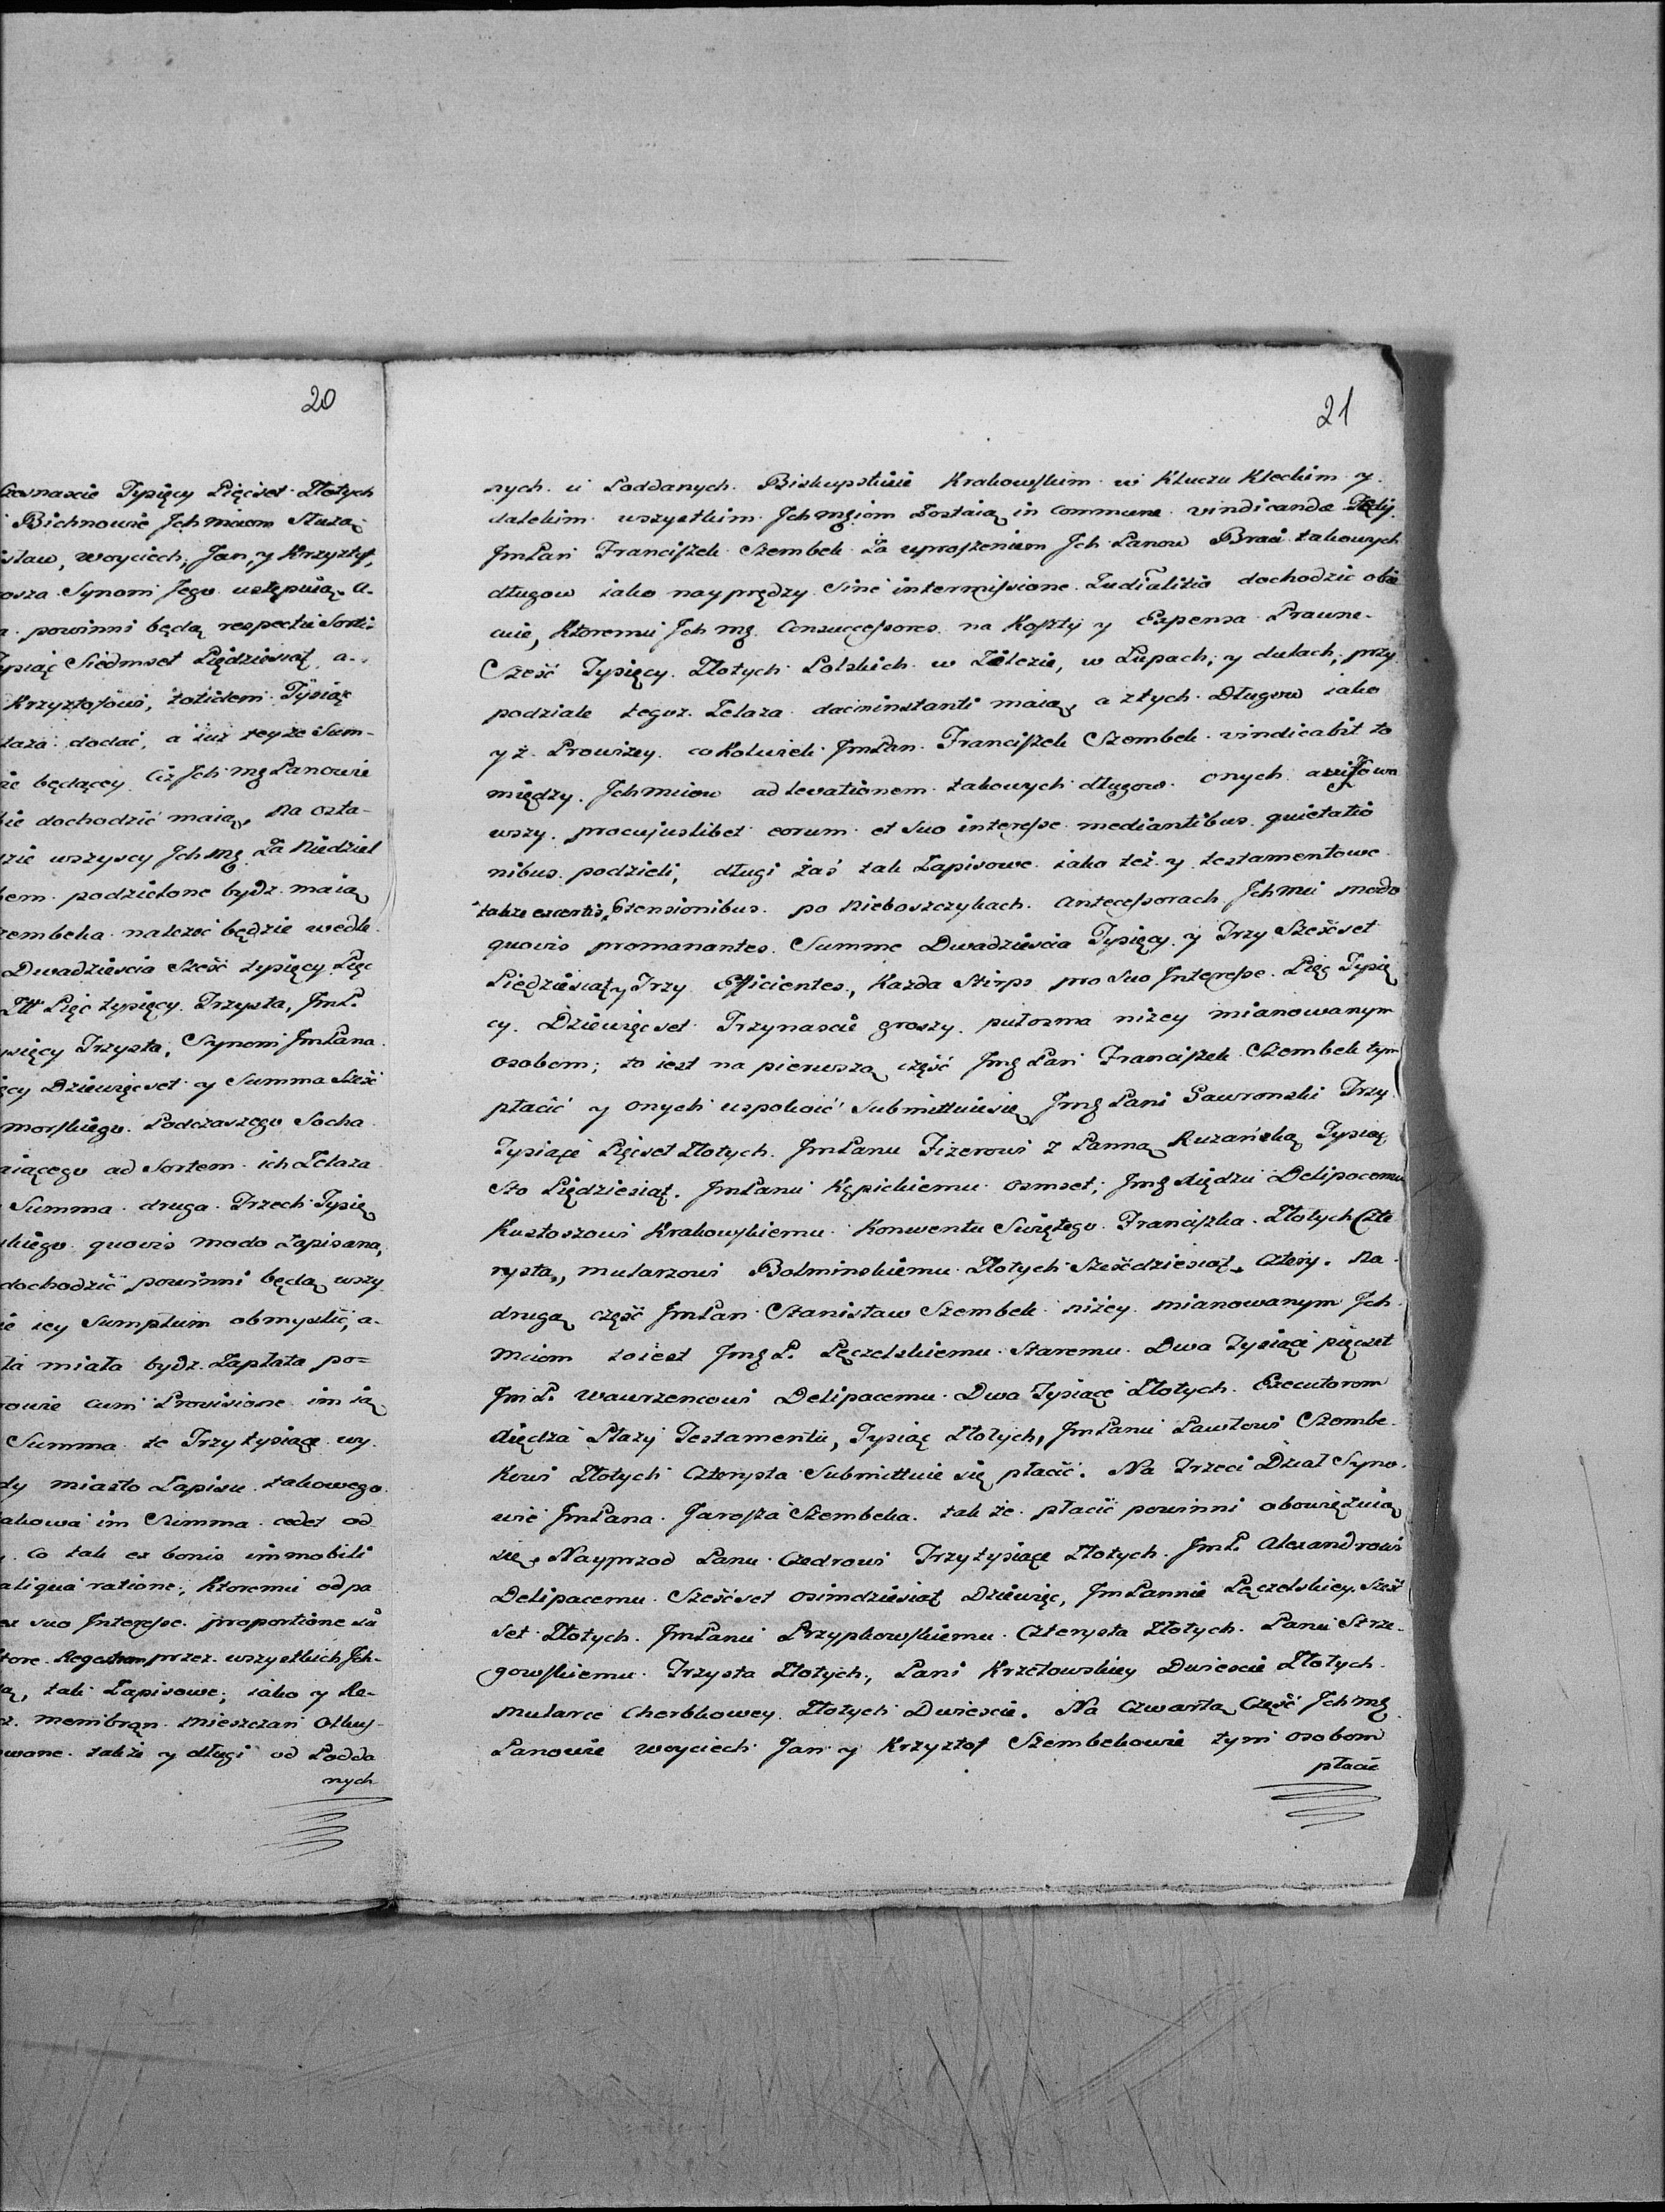 20
Tysięcy Pięćset Złotych
Bichnowie Jchmciom
sław, Woyciech, Jan, y Krzysztf,
osza Synom Jego ustępuią. a.
powinni będą respectu Sorti:
ysiąc Siedmset Pięćdziesiąt, a.
Krzysztofowi, totidem Tysiąc
laza dodać, a iuż teyże Sum-
ie będącey Ciż Jch mg Panowie
ie dochodzić maią, na osta-
wszyscy Jch mg Za Niedziel
em podzielone bydz maią
zembeka należeć będzie wedle
Dwadzieścia Sześć tysięcy Pięc
Zł Pięc tysięcy Trzysta, Jm P.
ysięcy Trzysta, Synom JmPana
ięcy Dziewięcset y Summa Sześć
morskiego Podczaszego Socha
aiącego ad Sortem ich Zelaza
Summa druga Trzech Tysię
skiego quovis modo Zapisana,
dochodzić powinni będą wszy
iey Sumptum obmyslić, a-
ta miała bydz Zapłata po=
owie cum Provisione im ią
Summa te Trzy tysiące wy.
dy miasto Zapisu takowego
akowa im Summa cedet od
Co tak ex bonis immobili
aliqua ratione, Ktoremu od pa
ex suo Interesse proportione
przez wszystkich Jch-
ą, tak Zapisowe, iako y Re-
z. membran Mieszczan Olkus-
owane także y długi od Podda
nych
21
nych u Poddanych Biskupstwie Krakowskim w Kluczu Kieckim y
dalekim wszystkim Jchmgiom Zostaią in Commune vindicanda
JmPan Franciszek Szembek Za uproszeniem Jch Panow Braci takowych
długow iako nayprędzy Sine intermissione dochodzić obie
cuie, Ktoremu Jch mg Consuccessores na Koszty y Expensa Prawne
Sześć Tysięcy Złotych Polskich w Zelezie, w Łupach, y dulach, przy
podziale tegoz Zelaza dac ininstanti maią, a ztych Długow iako
y z Prowizey cokolwiek JmPan Franciszek Szembek vindicabit to
między Jchmciow ad levationem takowych długow onych
wszy procujuslibet eorum et Suo interesse mediantibus quietatio
nibus podzieli, długi zaś tak Zapisowe iako też y testamentowe
także po Nieboszczykach Antecessorach Jchmci modo
quovis promanantes Summe Dwadzieścia Tysięcy y Trzy Sześćset
Piędziesiąt y Trzy Efficientes, Kazda Stirps pro Suo Interesse Pięc Tysię
cy Dziewięcset Trzynascie groszy pułosma niżey mianowanym
osobom; to iest na pierwszą część Jmg Pan Franciszek Szembek tym
płacić y onych uspokoić Submittuiesię Jmg Pani Gawronski Trzy
Tysiące Pięcset Złotych. JmPanu Fizerowi z Panną Ruzańską Tysiąc
Sto Pięćdziesiąt. JmPanu Kępickiemu osmset; Jmg Xiędzu Delipacemu
Kustoszowi Krakowskiemu Konwentu Swiętego Franciszka Złotych Czte
rysta, mularzowi Bolminskiemu Złotych Sześćdziesiąt Cztery. Na
drugą część JmPan Stanisław Szembek niżey mianowanym Jch
Mciom toiest Jmg P. Pęczelskiemu Staremu Dwa Tysiące pięcset
Jm P. Wawrzencowi Delipacemu Dwa Tysiące Złotych. Executorom
Xiędza Płazy Testamentu, Tysiąc Złotych, JmPanu Pawłowi Szembe-
Kowi Złotych Czterysta Submittuie się płacić. Na Trzeci Dział Syno-
wie JmPana Jarosza Szembeka. tak że płacić powinni obowięzuią
się, Nayprzod Panu Czedrowi Trzy tysiące Złotych. Jm P. Alexandrowi
Delipacemu Sześćset osimdziesiąt Dziewięc, JmPannie Pęczelskiey Sześć
set Złotych. JmPanu Przypkowskiemu Czterysta Złotych. Panu Strze-
gowskiemu Trzysta Złotych, Pani Krzetowskiey Dwiescie Złotych
Mularce Cherbkowey Złotych Dwiescie. Na Czwartą Część Jch mg
Panowie Woyciech Jan y Krzysztof Szembekowie tym osobom
płacić